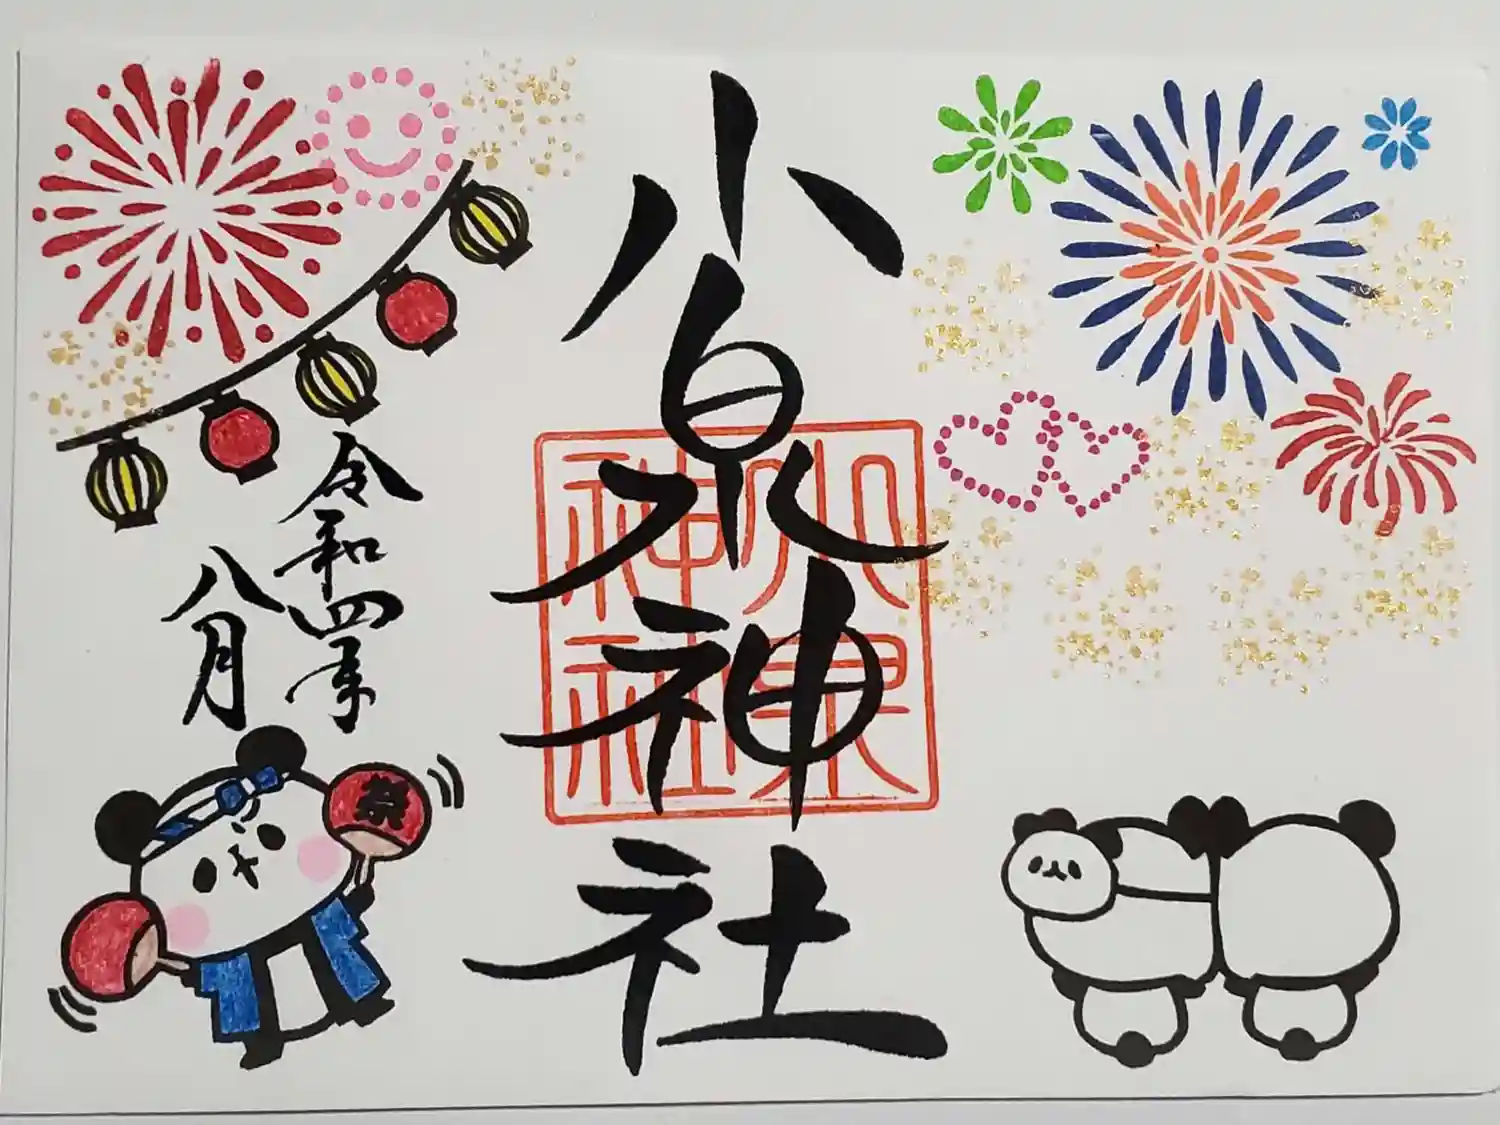 小泉神社
小泉神社
令和四年
八月
祭